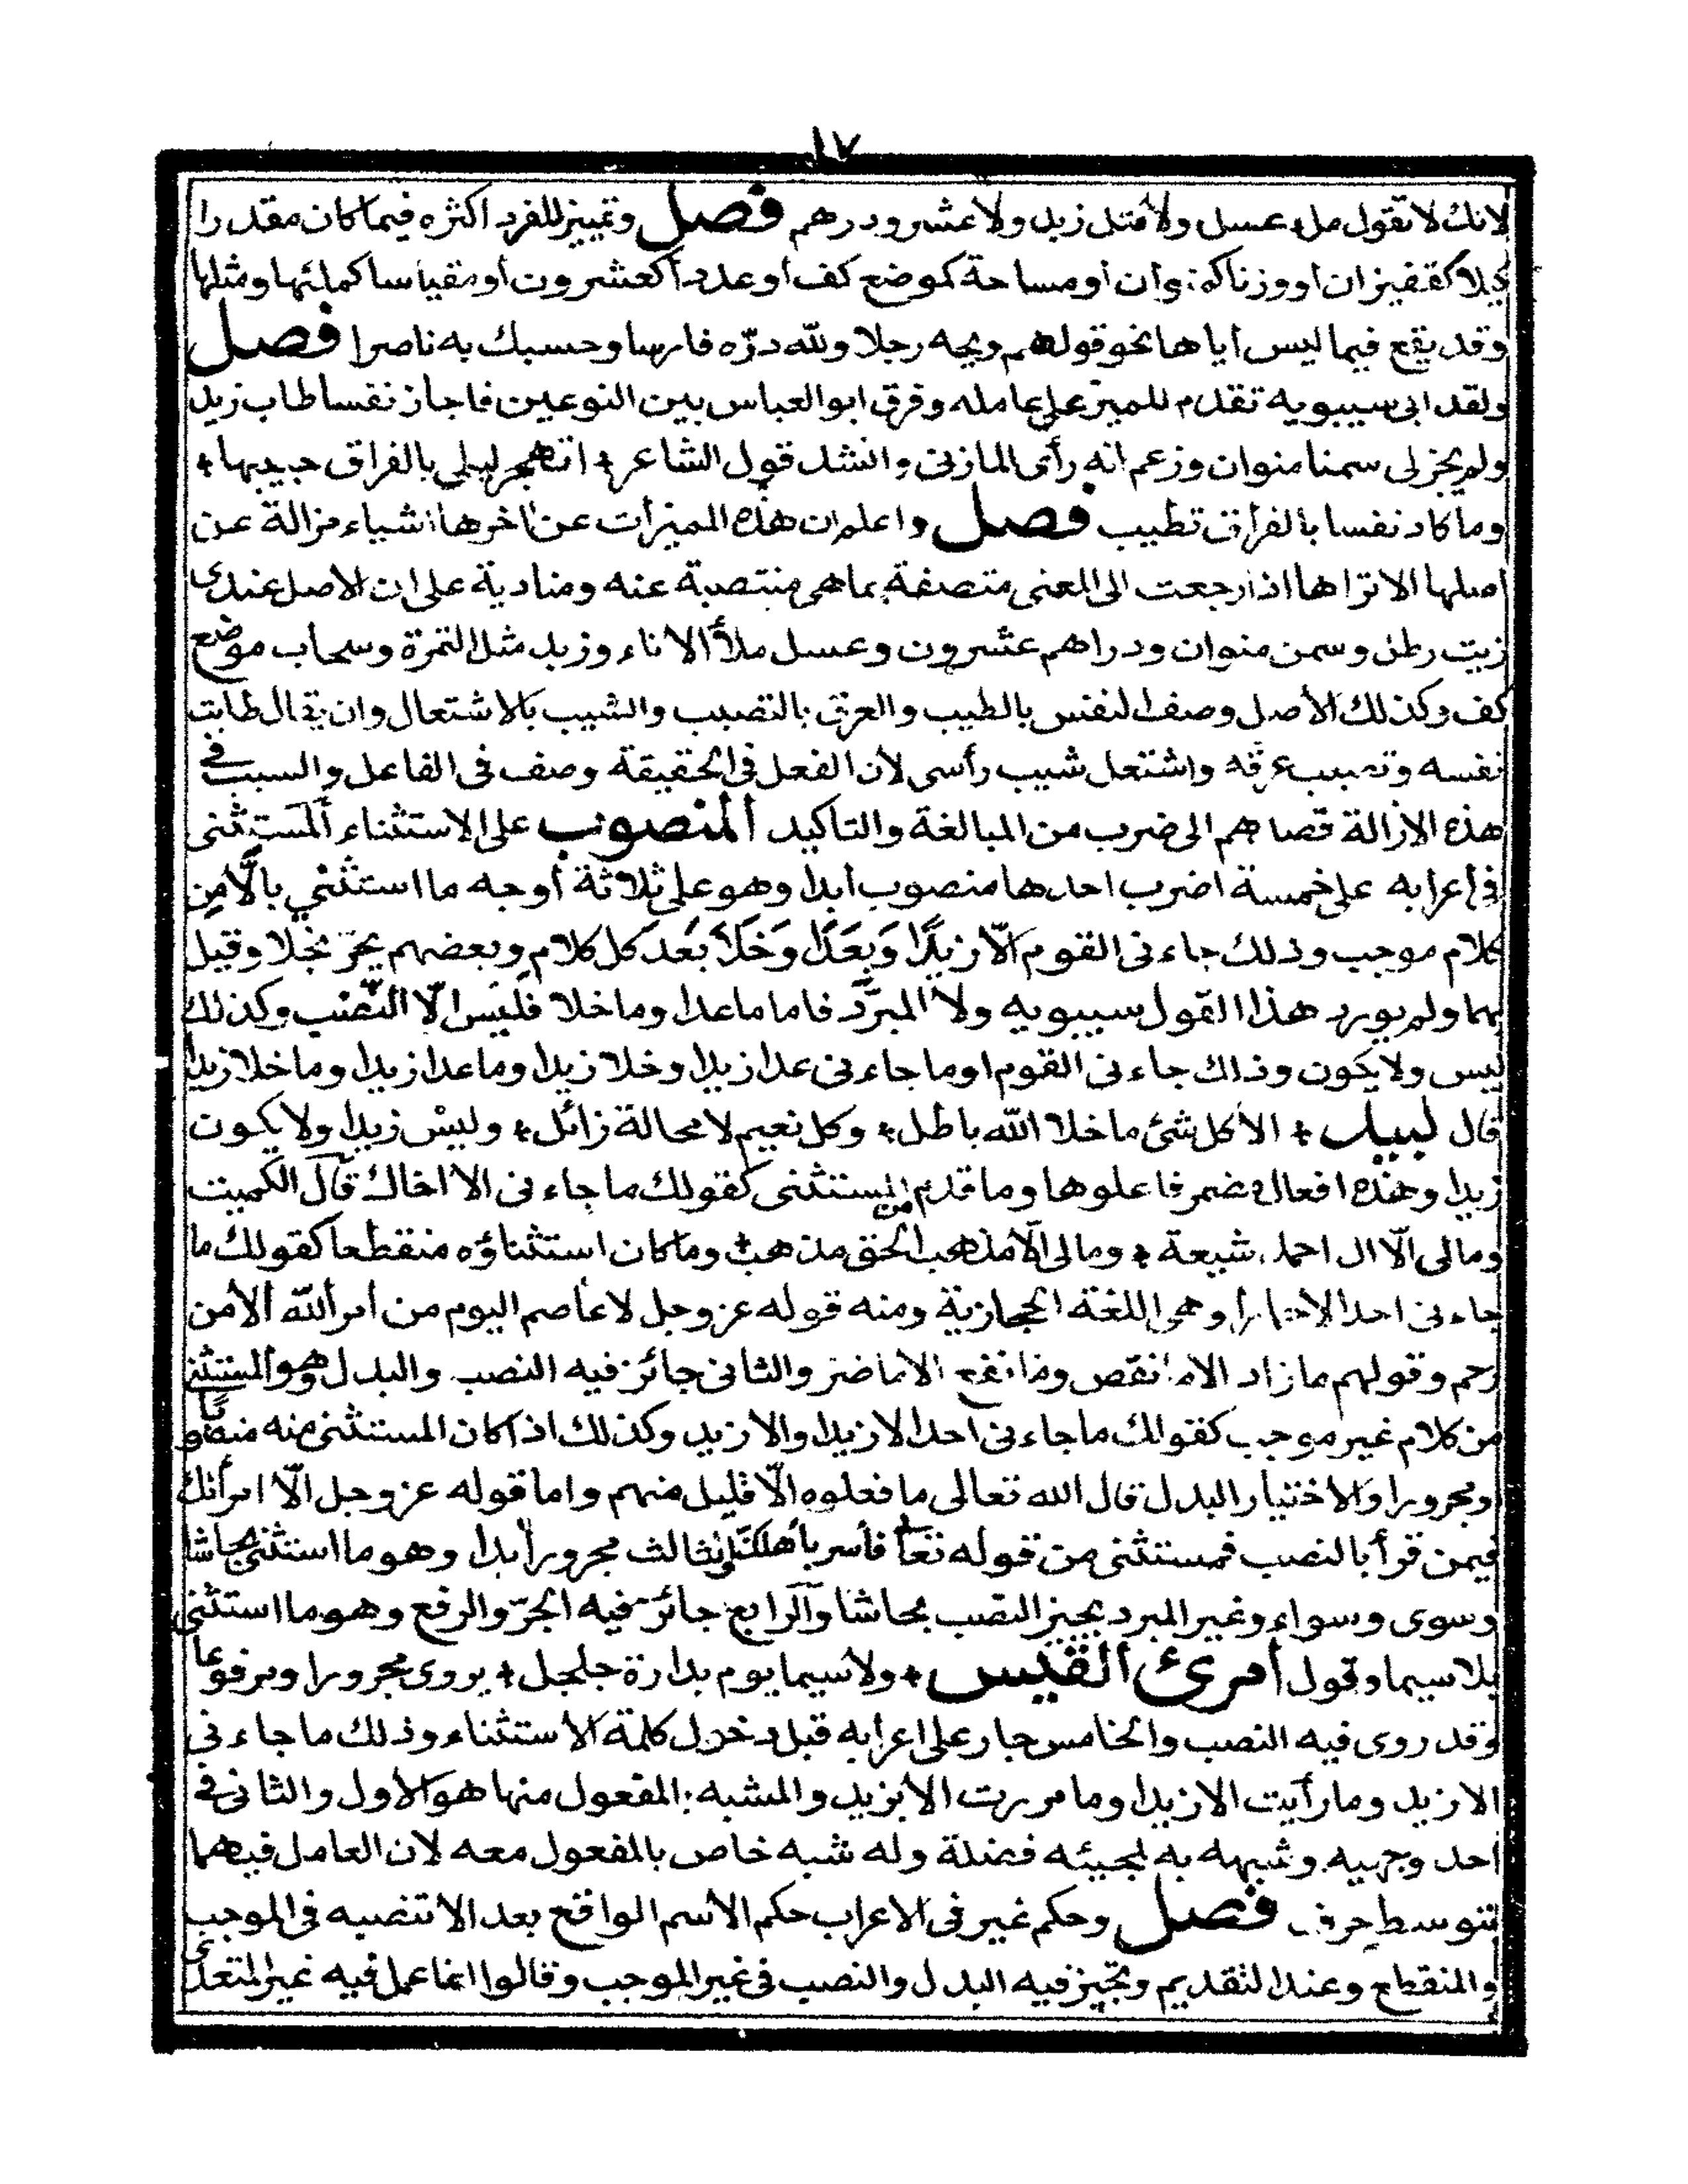 ١٧
لانك لا تقول ملء عسل ولا مثل زيد ولا عشرو درهم فصل وتمييز المفرد اكثره فيما كان مقدرا
كيلا كقفيزان او وزنا كمنوان او مساحة كموضع كف او عددا كعشرون او مقياسا كملئها ومثلها
وقد يقع فيما ليس اياها نحو قولهم ويحه رجلا ولله درّه فارسا وحسبك به ناصرا فصل
ولقد ابى سيبويه تقدم المميز على عامله وفرق ابو العباس بين النوعين فاجاز نفسا طاب زيد
ولم يجز لى سمنا منوان وزعم انه رأى المازنى وانشد قول الشاعر اتهجر ليلى بالفراق حبيبها
وما كاد نفسا بالفراق تطيب فصل واعلم ان هذه المميزات عن اخرها اشياء مزالة عن
اصلها الا تراها اذا رجعت الى المعنى متصفة بما هى منتصبة عنه ومنادية على ان الاصل عندى
زيت رطل وسمن منوان ودراهم عشرون وعسل ملأ الاناء وزبد مثل التمرة وسحاب موضع
كف وكذلك الأصل وصف النفس بالطيب والعرق بالتصبب والشيب بالاشتعال وان يقال طابت
نفسه وتصبب عرقه واشتعل شيب رأسى لأن الفعل فى الحقيقة وصف فى الفاعل والسبب فى
هذه الازالة قصاهم الى ضرب من المبالغة والتاكيد المنصوب على الاستثناء المستثنى
فى اعرابه على خمسة اضرب احدها منصوب أبدا وهو على ثلاثة أوجه ما استثنى بالّا من
كلام موجب وذلك جاءنى القوم الّا زيدًا وَبِعَدَا وَخَلَا بَعد كل كلام وبعضهم يجرّ بخلا وقيل
بهما ولم يورد هذا القول سيبويه ولا المبرّد فاما ما عدا وما خلا فليس الّا النّصب وكذلك
ليس ولا يكون وذلك جاءنى القوم او ما جاءنى عدا زيدا وخلا زيدا وما عدا زيدا وما خلا زيدا
قال لبيد الا كل شئ ما خلا الله باطل وكل نعيم لا محالة زائل وليس زيدا ولا يكون
زيدا وهذه افعال مضمر فاعلوها وما قدم من المستثنى كقولك ما جاءنى الا اخاك قال الكميت
ومالى الّا ال احمد شيعة ومالى الّا مذهب الحق مذهب وما كان استثناؤه منقطعا كقولك ما
جاءنى احد الا حمارا وهى اللغة الحجازية ومنه قوله عز وجل لا عاصم اليوم من أمر الله ألا من
رحم وقولهم ما زاد الا ما نقص وما نفع الا ما ضر والثانى جائز فيه النصب والبدل وهو المستثنى
من كلام غير موجب كقولك ما جاءنى احد الا زيدا والا زيد وكذلك اذا كان المستثنى منه منصوبًا
او مجرورا والاختيار البدل قال الله تعالى ما فعلوه الّا قليل منهم واما قوله عز وجل الّا امرأتك
فيمن قرأ بالنصب فمستثنى من قوله تعالى فأسر بأهلك والثالث مجرور أبدا وهو ما استثنى بحاشا
وسوى وسواء وغير المبرد يجيز النصب بحاشا والرابع جائز فيه الجرّ والرفع وهو ما استثنى
بلا سيما وقول أمرئ القيس ولا سيما يوم بدارة جلجل يروى مجرورا ومرفوعا
وقد روى فيه النصب والخامس جار على اعرابه قبل دخول كلمة الاستثناء وذلك ما جاءنى
الا زيد وما رأيت الا زيدا وما مررت الا بزيد والمشبه بالمفعول منها هو الأول والثانى فى
احد وجهيه وشبهه به لمجيئه فضلة وله شبه خاص بالمفعول معه لان العامل فيهما
بتوسط حرف فصل وحكم غير فى الاعراب حكم الاسم الواقع بعد الا تنصبه فى الموجب
والمنقطع وعند التقديم وتجيز فيه البدل والنصب فى غير الموجب وقالوا انما عمل فيه غير المتعدى